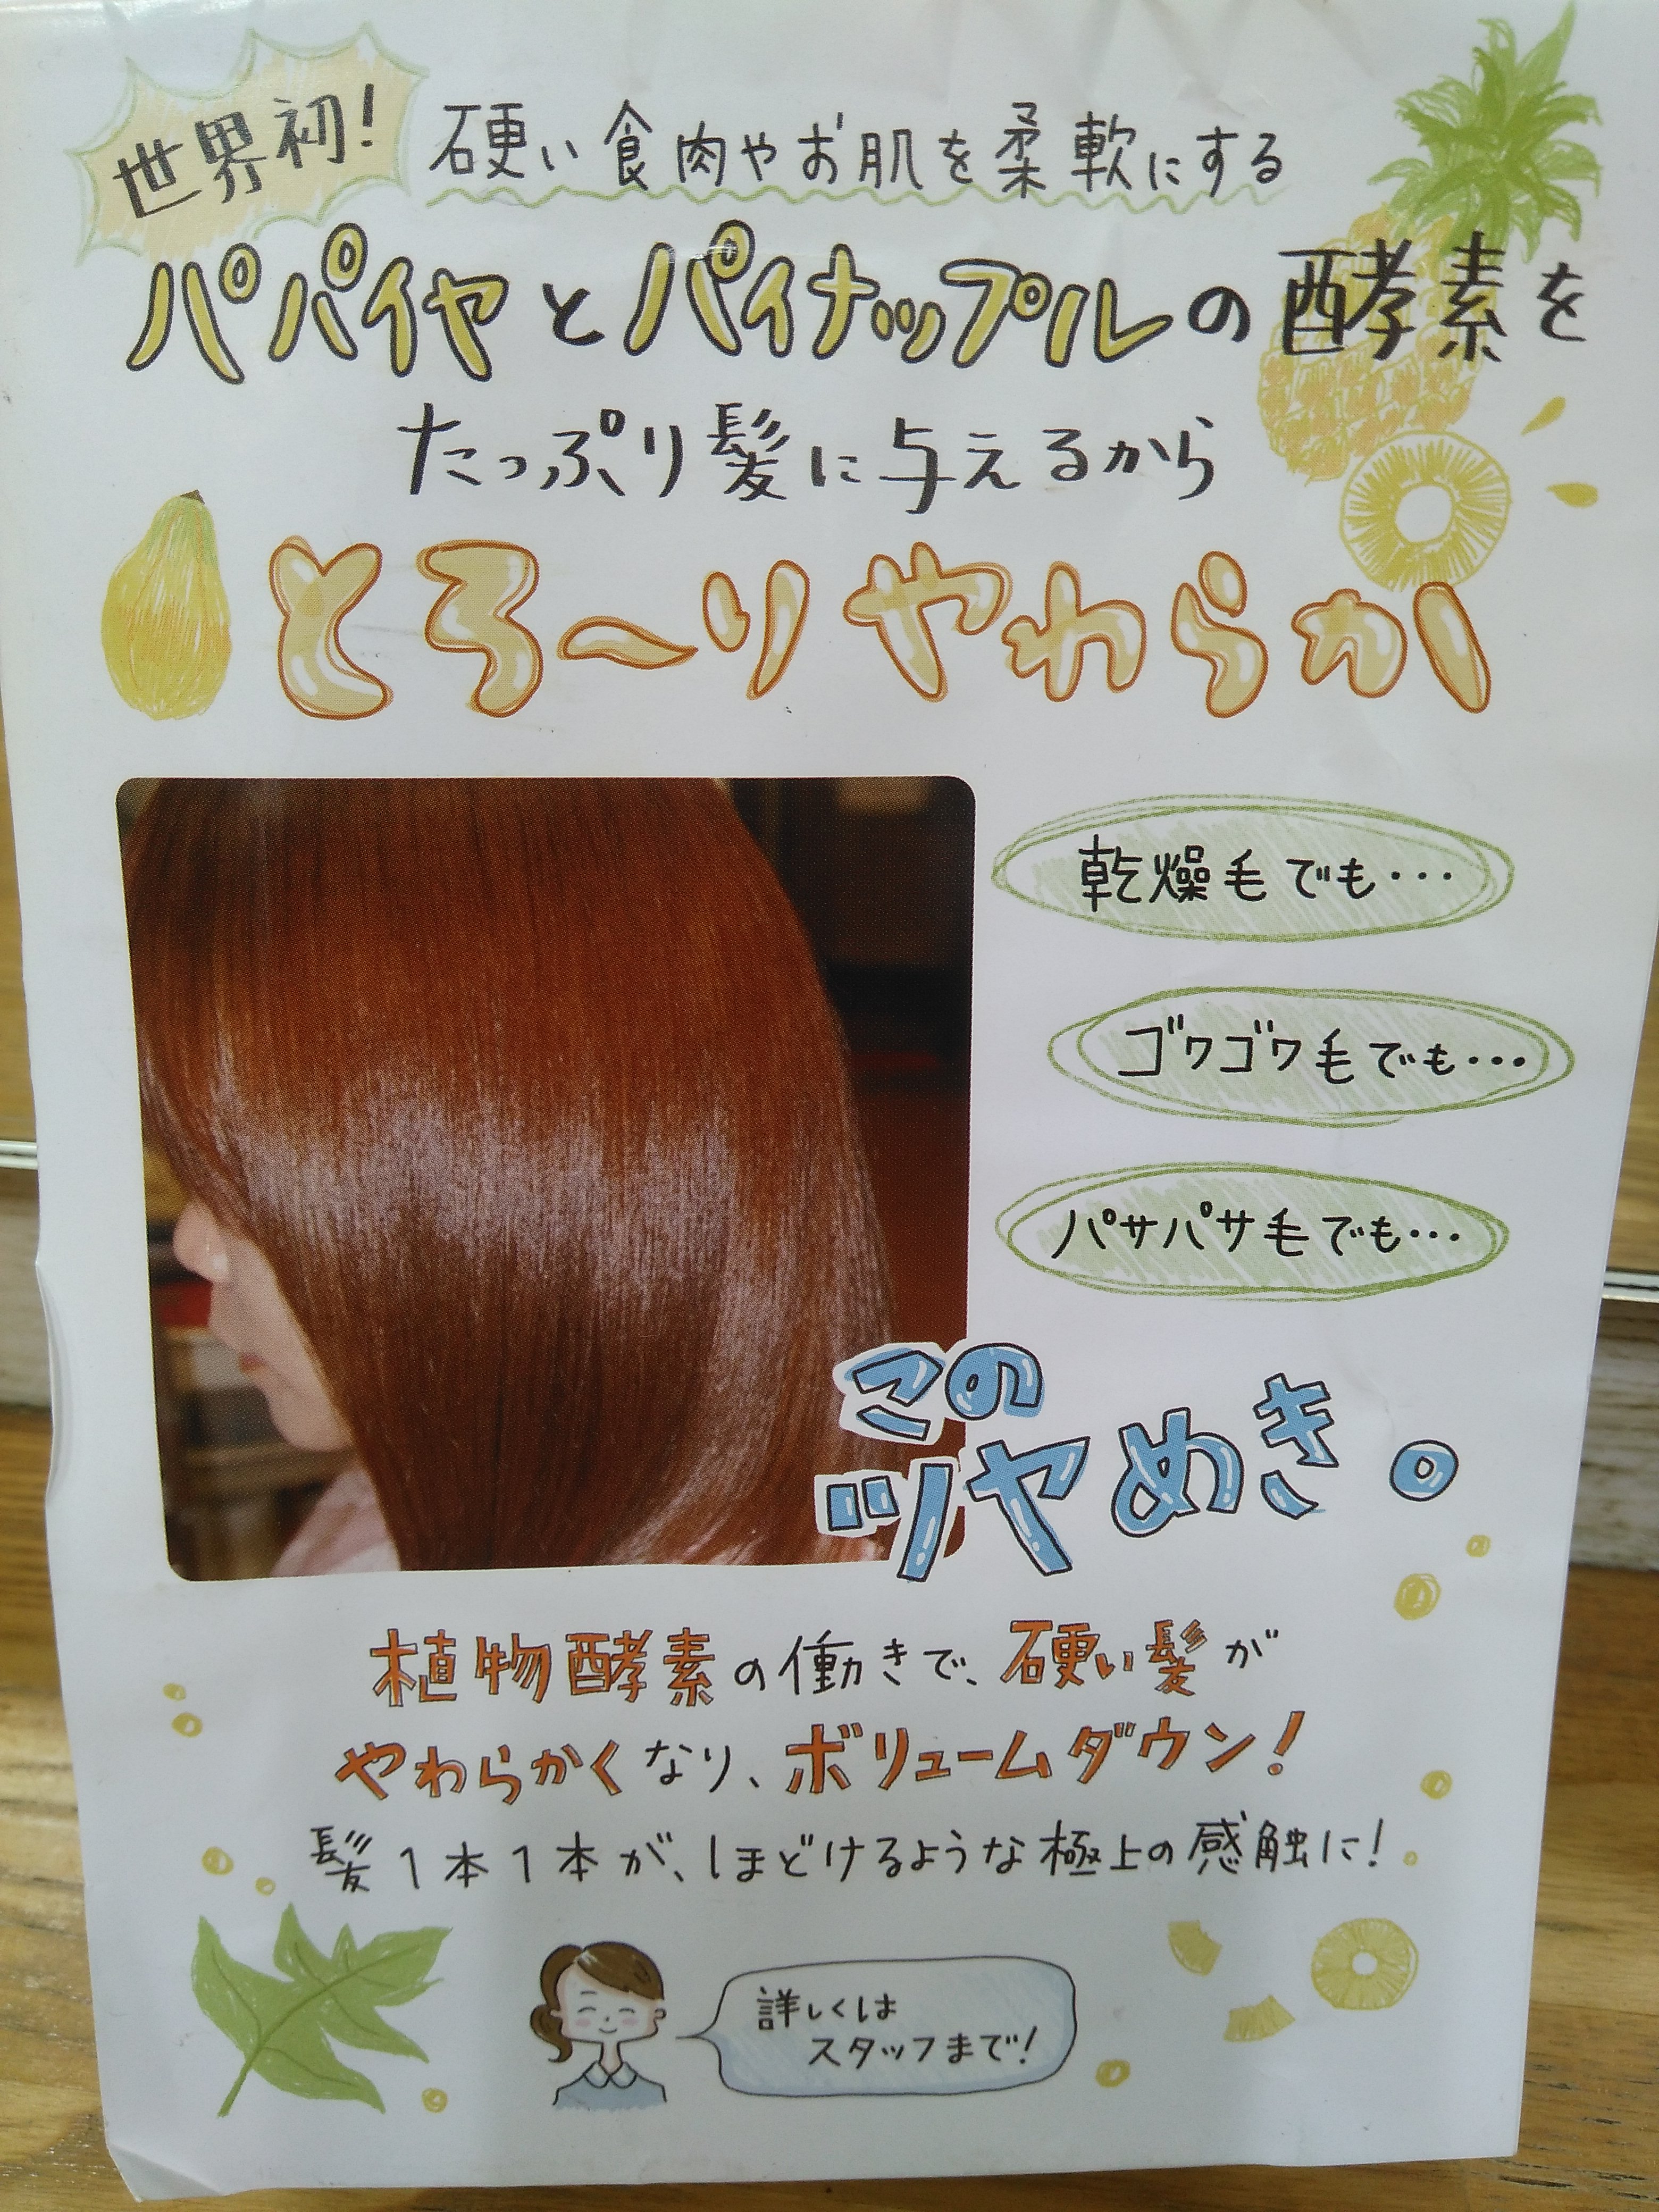 世界初！
硬い食肉やお肌を柔軟にする
パパイヤとパイナップルの酵素を
たっぷり髪に与えるから
とろ〜りやわらか
乾燥毛でも･･･
ゴワゴワ毛でも･･･
パサパサ毛でも･･･
この
ツヤめき。
植物酵素の働きで、硬い髪が
やわらかくなり、ボリュームダウン！
髪1本1本が、ほどけるような極上の感触に！
詳しくは
スタッフまで！